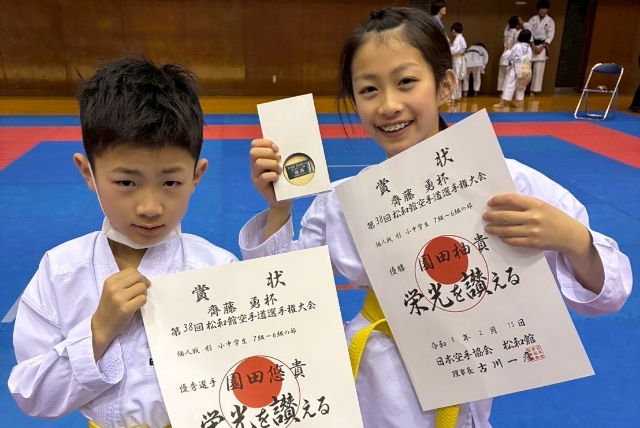 賞状
齊藤勇杯
第38回松和館空手道選手権大会
個人戦 形 小中学生 7級〜6級の部
優秀選手 園田悠貴
栄光を讃える
賞状
齊藤勇杯
第38回松和館空手道選手権大会
個人戦 形 小中学生 7級〜6級の部
優勝 園田柚貴
栄光を讃える
2月15日
日本空手協会 松和館
理事長 古川一